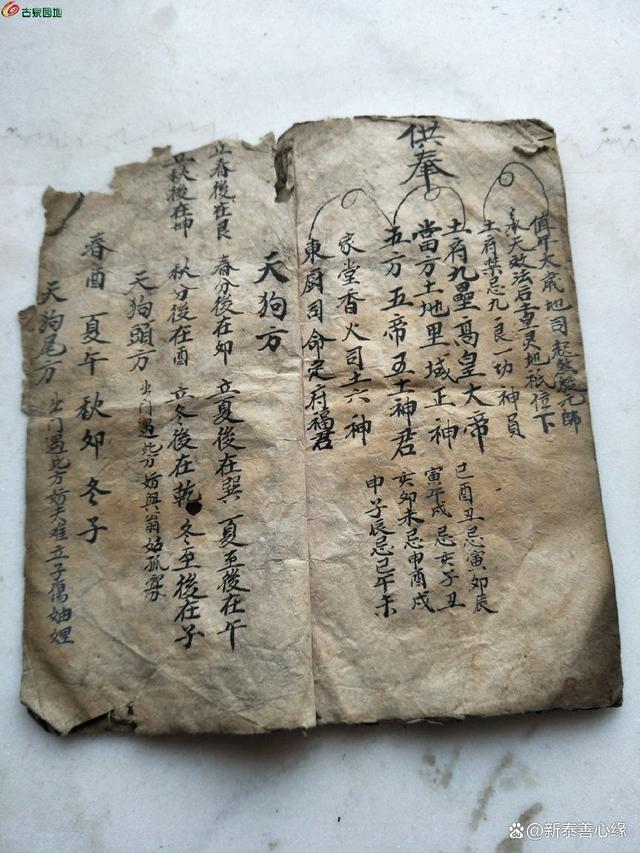 古泉园地
供奉
值年太歲地司起煞殷元帥
奉天敕法后土重灵地祇位下
土府禁忌九良一切神員
土府九壘高皇大帝
當方土地里域正神
五方五帝五土神君
家堂香火司土六神
東厨司命定府福君
巳酉丑忌寅卯辰
寅午戌忌亥子丑
亥卯未忌申酉戌
申子辰忌巳午未
天狗方
立春後在艮 春分後在卯 立夏後在巽 夏至後在午
立秋後在坤 秋分後在酉 立冬後在乾 冬至後在子
天狗頭方 出门遇此方妨與翁姑孤寡
春酉 夏午 秋卯 冬子
天狗尾方 出门遇此方妨夫难立子傷妯娌
@新泰善心缘